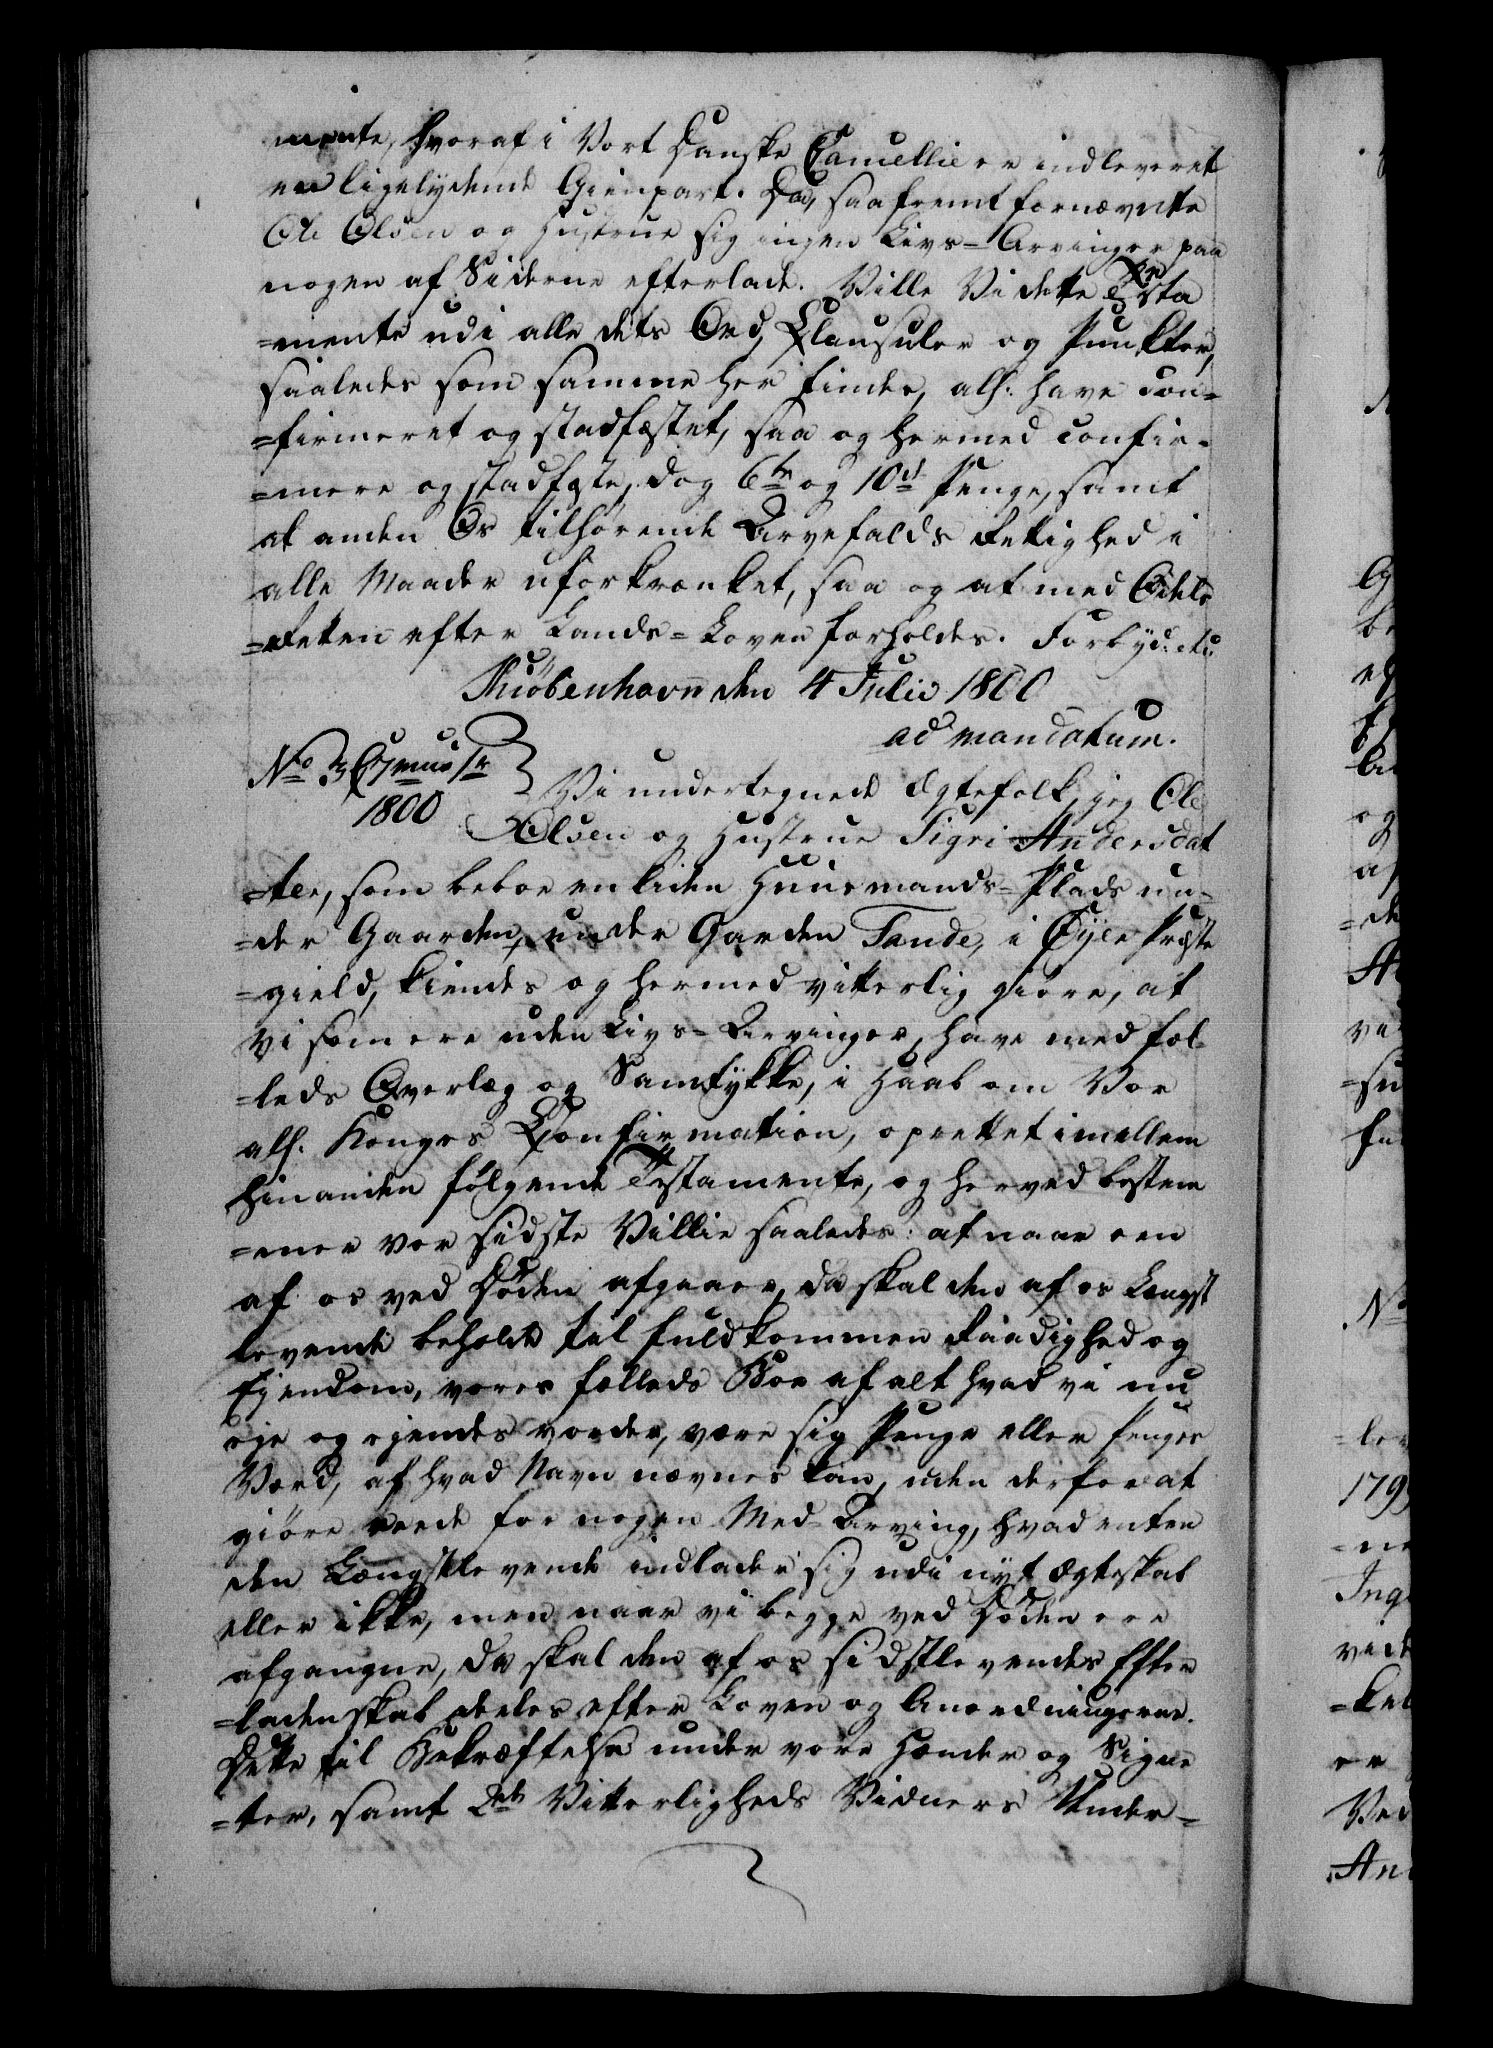 mente, hvoraf i Vort Danske Cancellie er indleveret
en ligelydende Gienpart. Da, saafremt fornævnte
Ole Olsen og Hustrue sig ingen Livs-Arvinger paa
nogen af Siderne efterlade. Ville Vi dette Testa
=mente udi alle dets Ord, Clausuler og Punkter,
saaledes som samme her findes, alh: have con-
=firmeret og stadfæstet, saa og hermed confir-
=mere og stadfæste, dog 6te og 10de Penge, samt
al anden Os tilhørende Arvefalds Rettighed i
alle Maader uforkrænket, saa og at med Odels
=Retten efter Lands=Loven forholdes. Forbyd: etc:
Kiøbenhavn den 4 Julii 1800
ad mandatum.
No 1800
Vi undertegnede Ægtefolk, jeg Ole
Olsen og Hustrue Sigri Andersdat
=ter, som beboe en liden Huusmands=Plads un-
=der Gaarden, under Garden Tande, i Øyer Præste
=gield, kiendes og hermed vitterlig giøre, at
Vi som ere uden Livs=Arvinger, have med fæl-
=leds Overlæg og Samtykke, i Haab om Vor
alh. Konges Confirmation, oprettet imellem
hinanden følgende Testamente, og herved bestem
=mer vor sidste Villie saaledes: at naar een
af os ved Døden afgaaer, da skal den af os Længst
levende beholde til fuldkommen Raadighed og
Ejendom, vores fælleds Boe af alt hvad vi nu
eje og ejendes vorder, være sig Penge eller Penges
Værd, af hvad Navn nævnes kan, uden derfor at
giøre rede for nogen Med-Arving, hvad enten
den Længstlevende indlader sig udi nyt Ægteskab
eller ikke, men naar vi begge ved Døden ere
afgangne, da skal den af os sidstlevendes Efter
=ladenskab deeles efter Loven og Anordningerne.
Dette til Bekræftelse under vore Hænder og Signe
=ter, samt Vitterligheds Vidners Under-